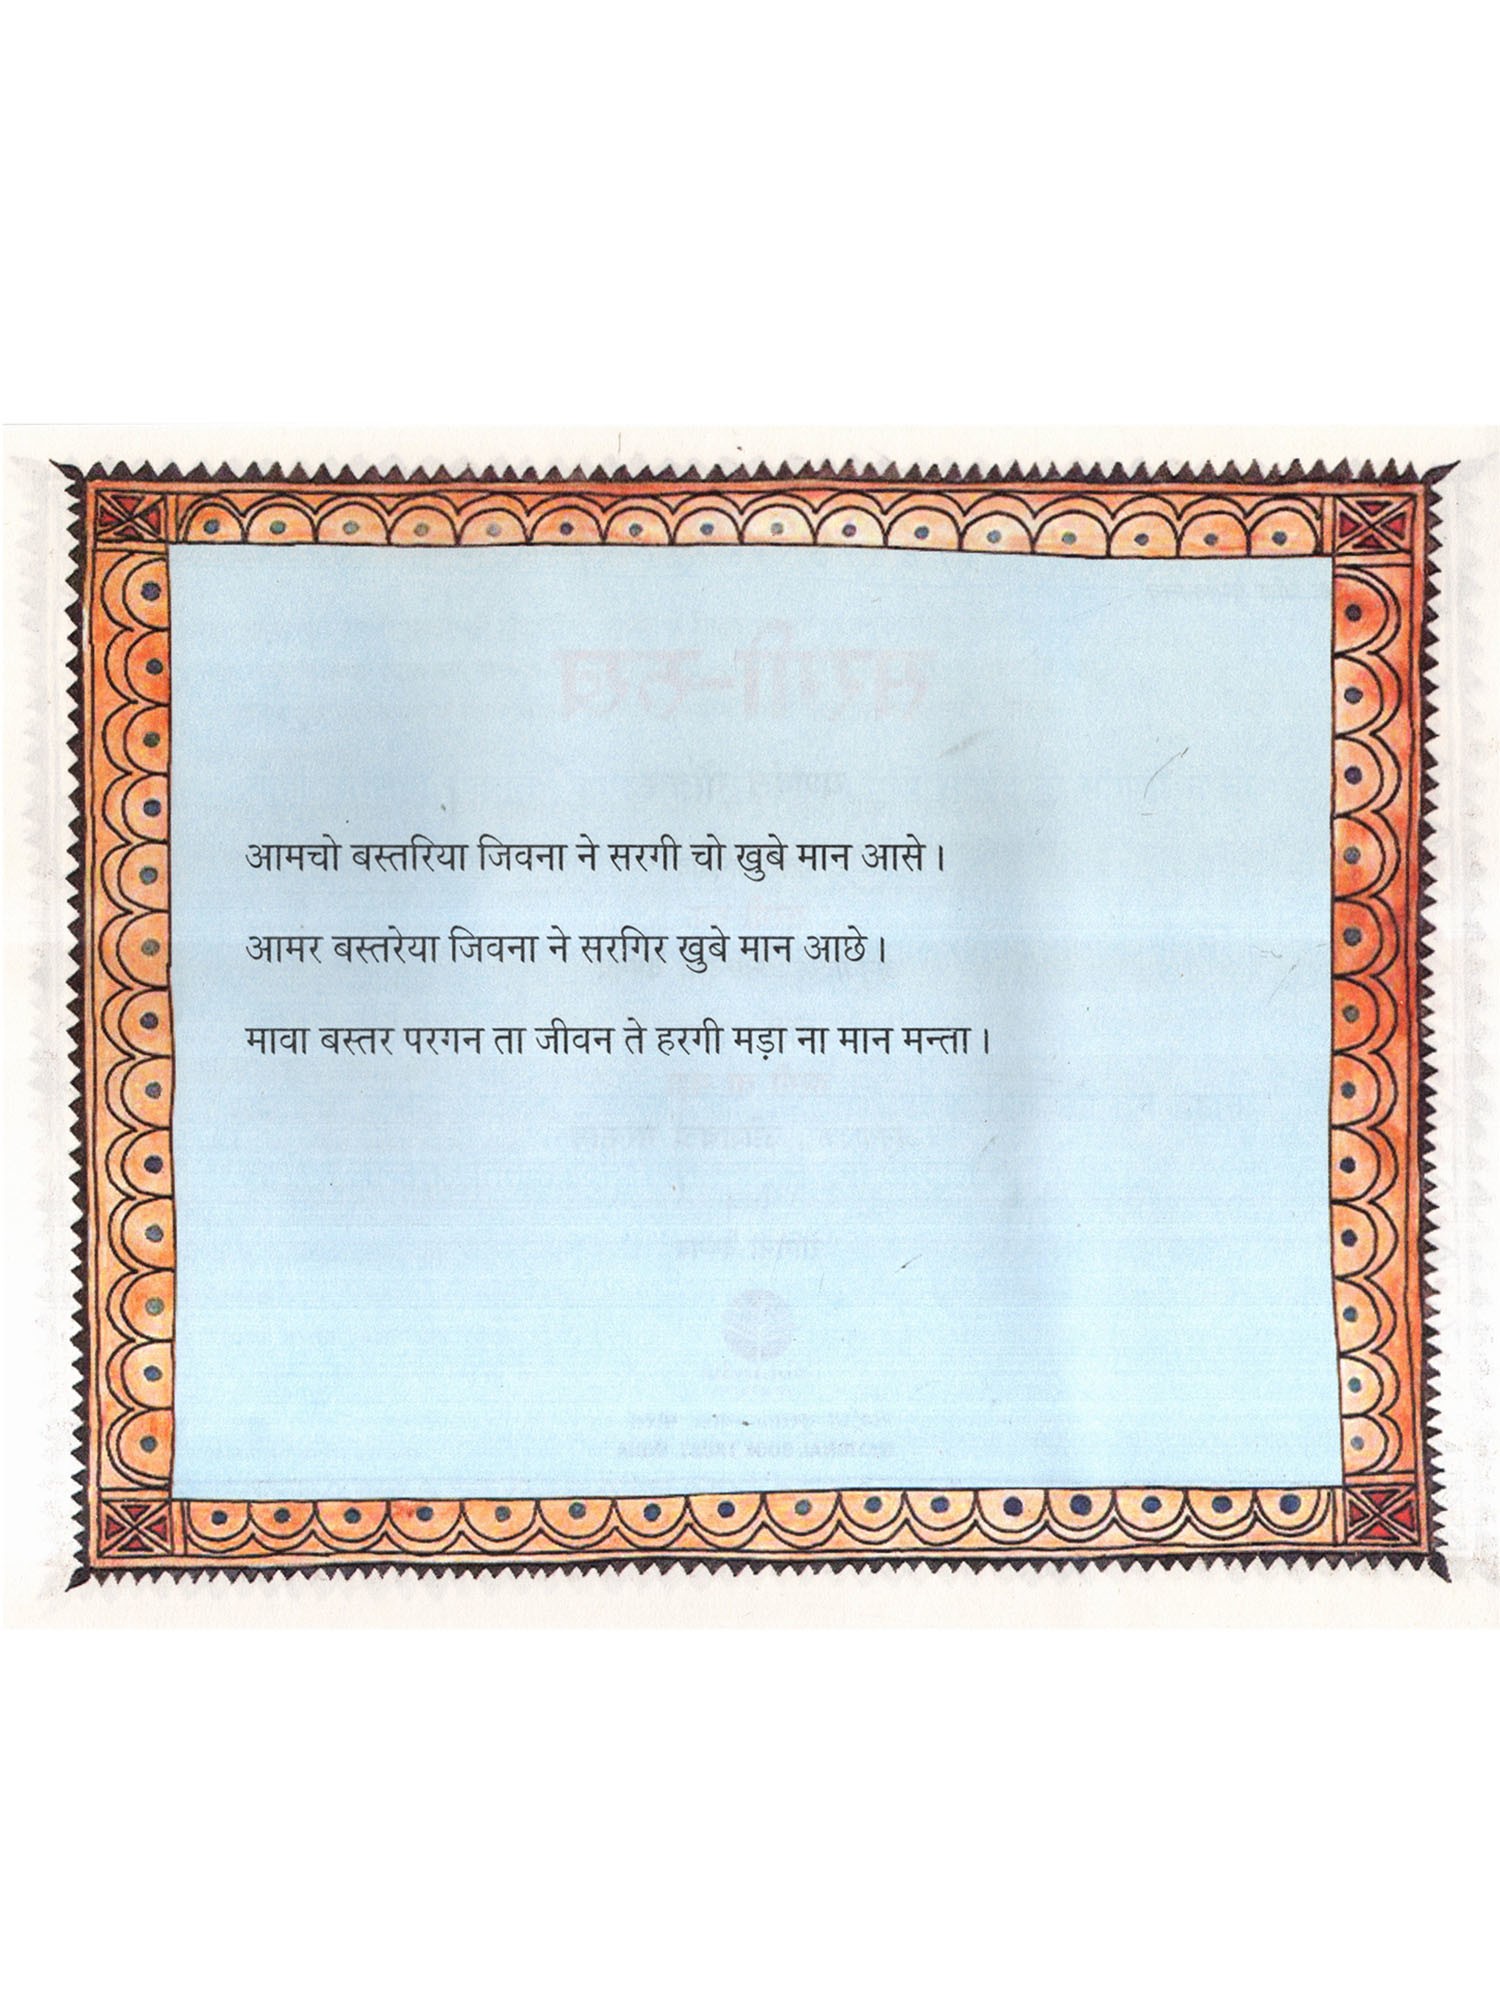 आमचो बस्तरिया जिवना ने सरगी चो खुबे मान आसे।
आमर बस्तरेया जिवना ने सरगिर खुबे मान आछे।
मावा बस्तर परगन ता जीवन ते हरगी मड़ा ना मान मन्ता।